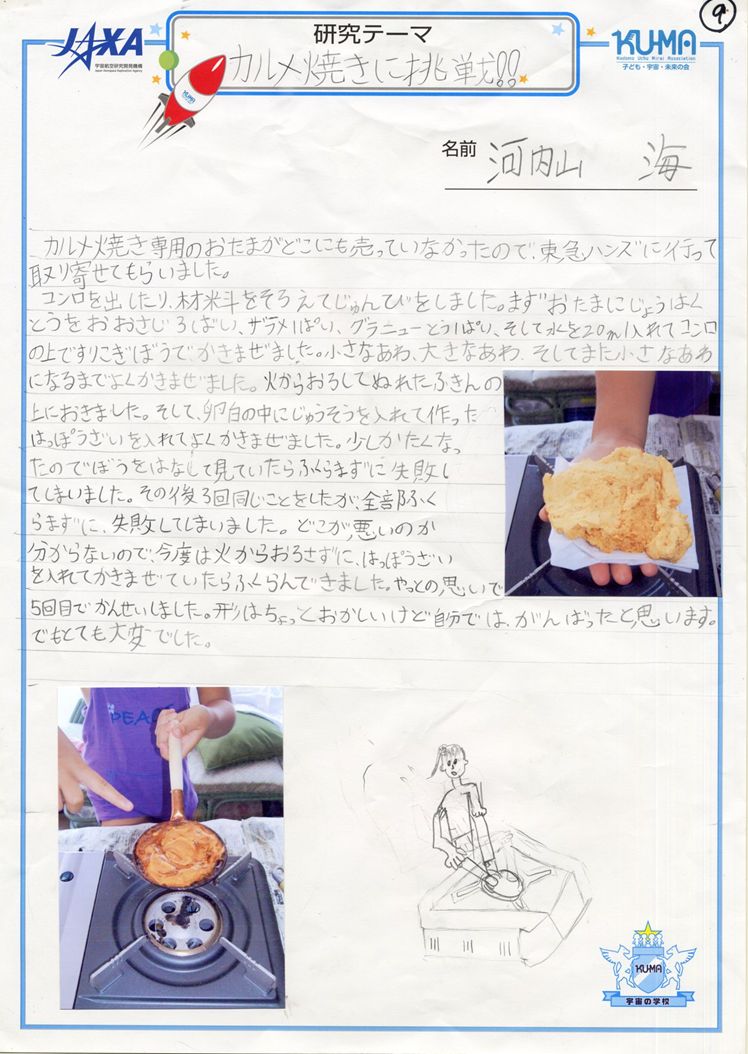 9
JAXA
宇宙航空研究開発機構
Japan Aerospace Exploration Agency
研究テーマ
カルメ焼きに挑戦!!
KU-MA
Kodomo Uchu Mirai Association
子ども・宇宙・未来の会
KU-MA
名前 河内山 海
カルメ焼き専用のおたまがどこにも売っていなかったので、東急ハンズに行って
取り寄せてもらいました。
コンロを出したり、材料をそろえてじゅんびをしました。まずおたまにじょうはく
とうをおおさじ3ばい、ザラメ1ぱい、グラニューとう1ぱい、そして水を20ml入れてコンロ
の上ですりこぎぼうでかきまぜました。小さなあわ、大きなあわ、そしてまた小さなあわ
になるまでよくかきまぜました。火からおろしてぬれたふきんの
上におきました。そして、卵白の中にじゅうそうを入れて作った
はっぽうざいを入れてよくかきまぜました。少しかたくなっ
たのでぼうをはなして見ていたらふくらまずに失敗し
てしまいました。その後3回同じことをしたが、全部ふく
らまずに、失敗してしまいました。どこが悪いのか
分からないので、今度は火からおろさずに、はっぽうざい
を入れてかきまぜていたらふくらんできました。やっとの思いで
5回目でかんせいしました。形はちょっとおかしいけど自分では、がんばったと思います。
でもとても大変でした。
PEACE
KU-MA
宇宙の学校